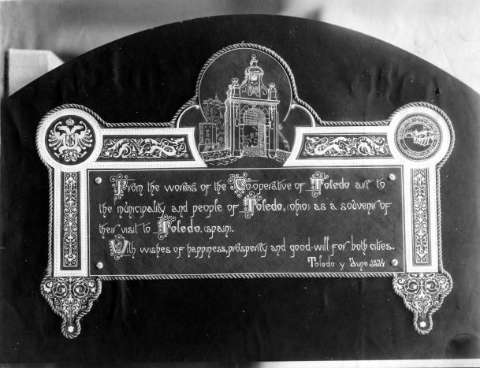 From the works of the Cooperative of Toledo art to
the municipality and people of Toledo, ohio; as a souvenir of
their visit to Toledo, (spain).
With wishes of happiness, prosperity and good-will for both cities.
Toledo y June 1934